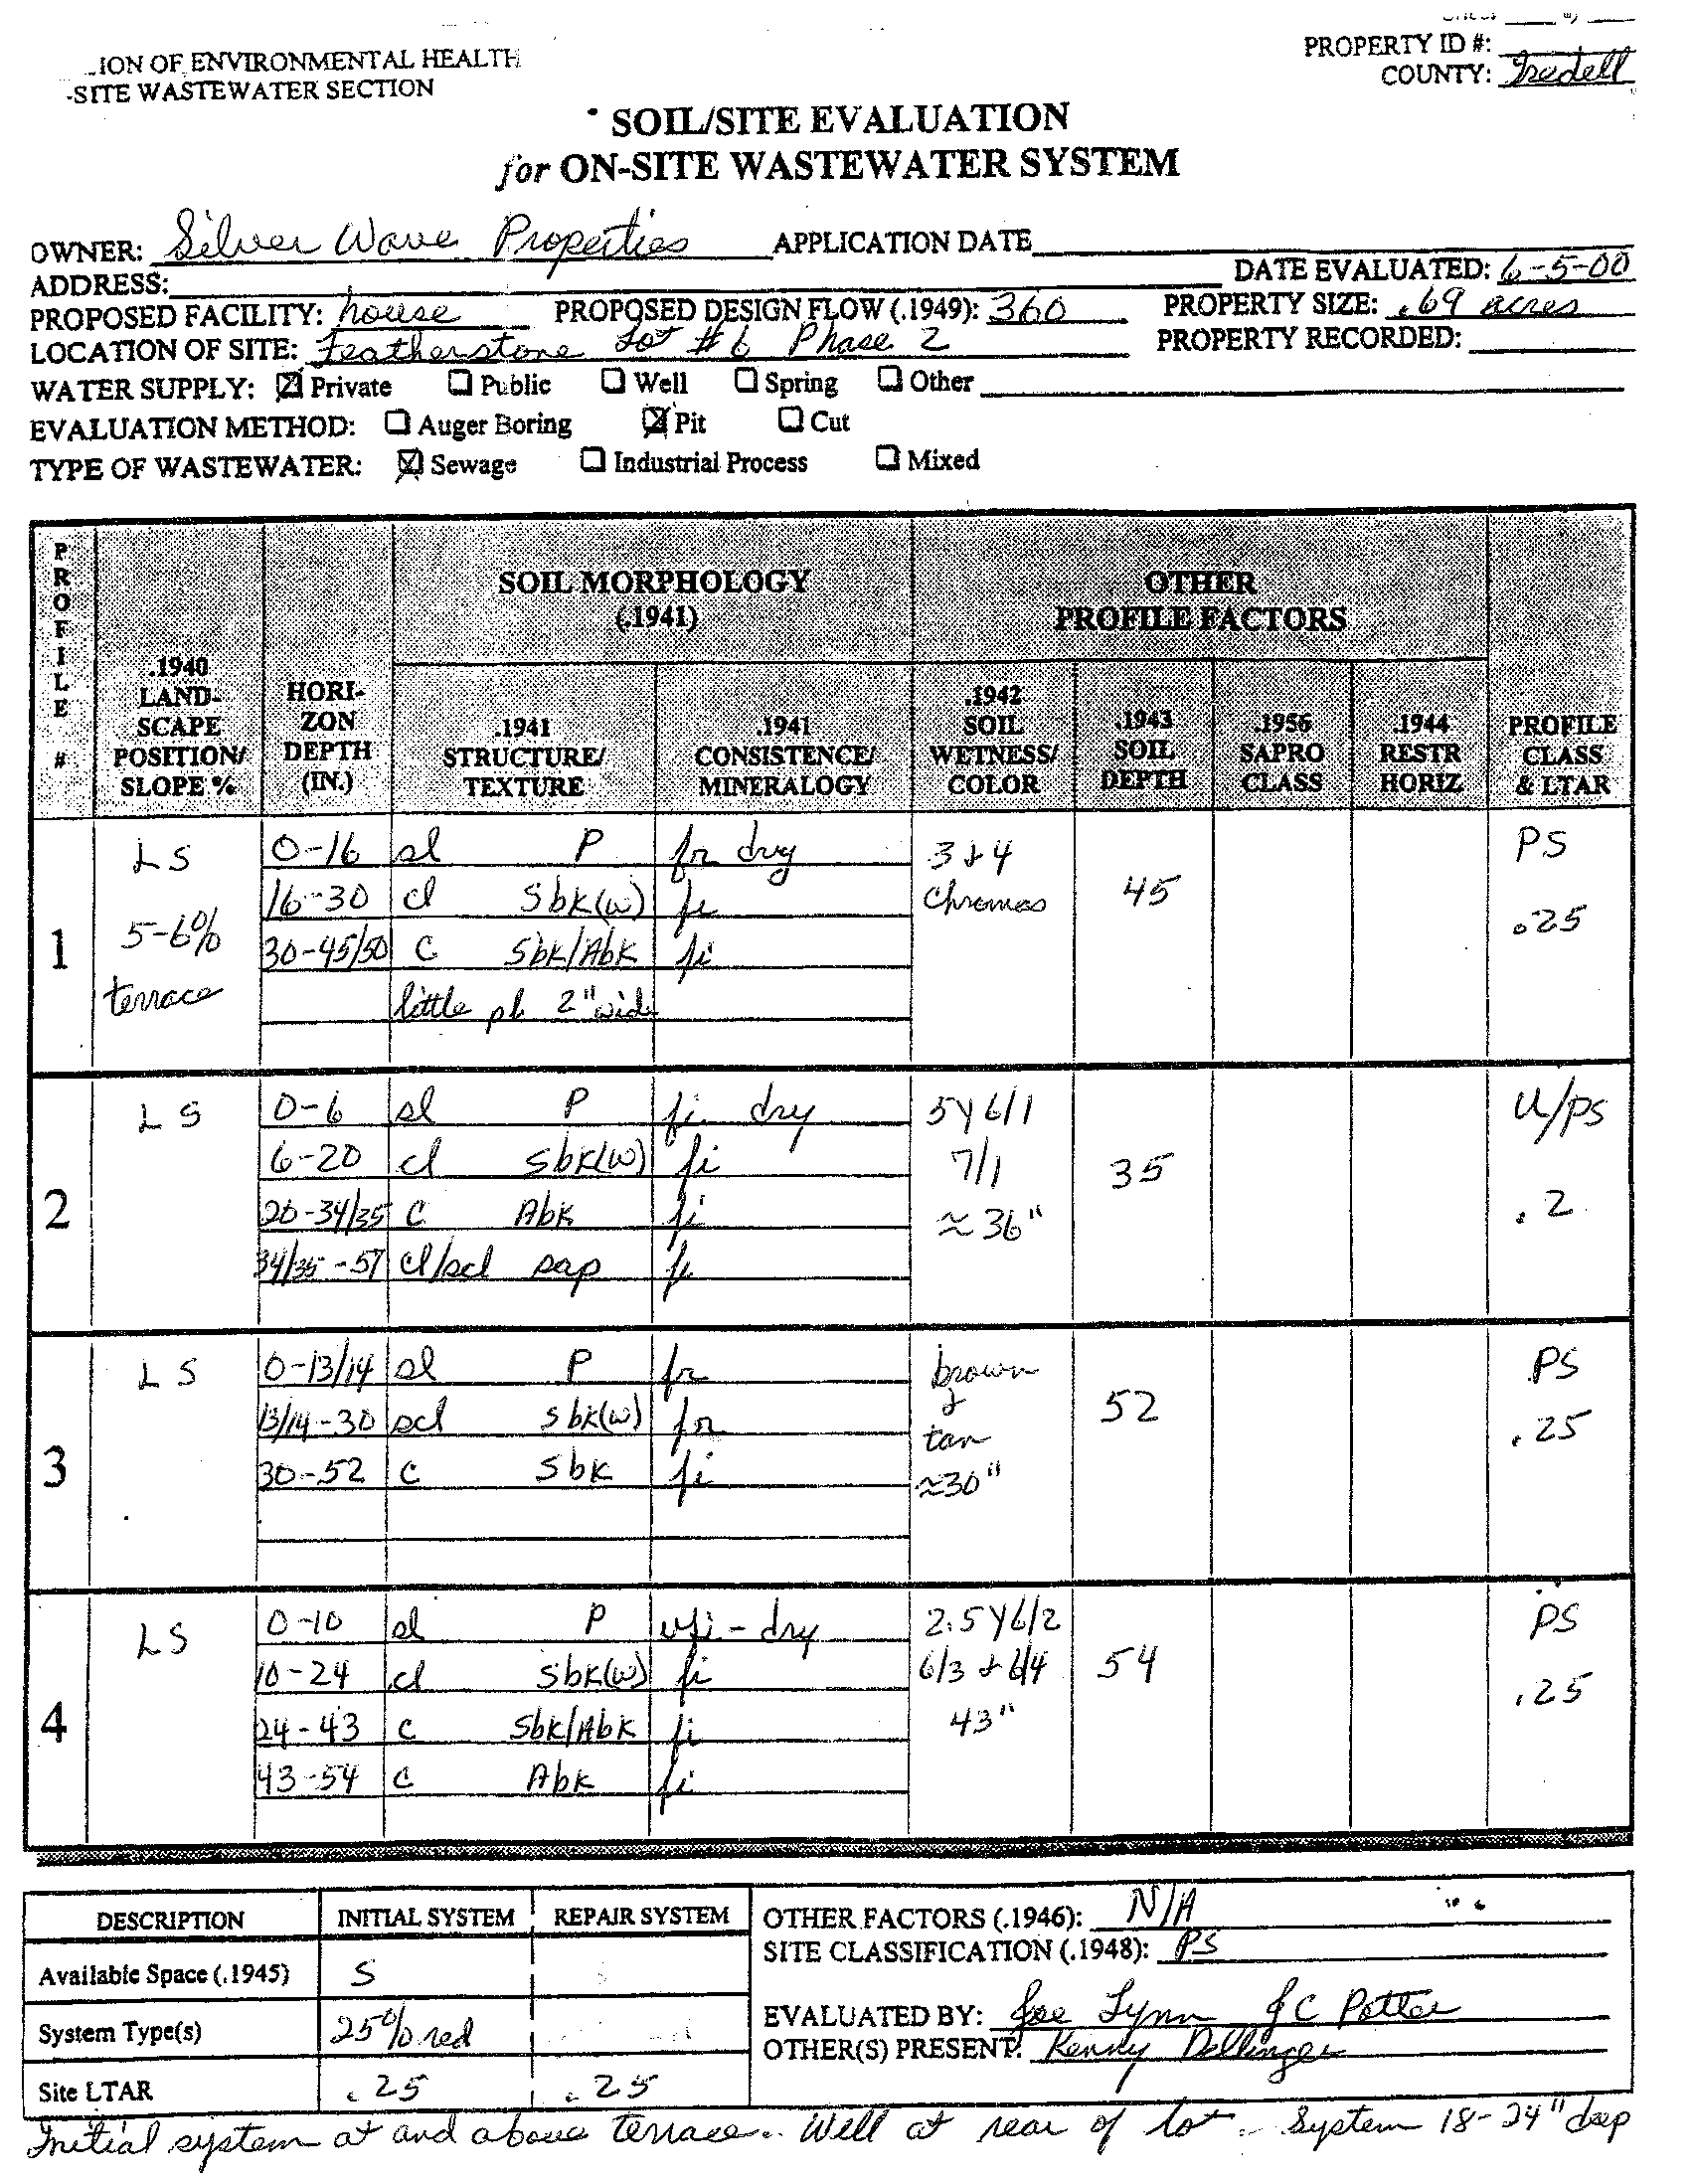 PROPERTY ID #:
ION OF ENVIRONMENTAL HEALTH
COUNTY: Iredell
-SITE WASTEWATER SECTION
SOIL/SITE EVALUATION
for ON-SITE WASTEWATER SYSTEM
OWNER: Silver Wave Properties APPLICATION DATE
ADDRESS: DATE EVALUATED: 6-5-00
PROPOSED FACILITY: house PROPOSED DESIGN FLOW (.1949): 360 PROPERTY SIZE: .69 acres
LOCATION OF SITE: Featherstone Lot #6 Phase 2 PROPERTY RECORDED:
WATER SUPPLY: ☒ Private ☐ Public ☐ Well ☐ Spring ☐ Other
EVALUATION METHOD: ☐ Auger Boring ☒ Pit ☐ Cut
TYPE OF WASTEWATER: ☒ Sewage ☐ Industrial Process ☐ Mixed
PROFILE #
.1940 LAND-SCAPE POSITION/ SLOPE %
HORI-ZON DEPTH (IN.)
SOIL MORPHOLOGY (.1941)
.1941 STRUCTURE/ TEXTURE
.1941 CONSISTENCE/ MINERALOGY
OTHER PROFILE FACTORS
.1942 SOIL WETNESS/ COLOR
.1943 SOIL DEPTH
.1956 SAPRO CLASS
.1944 RESTR HORIZ
PROFILE CLASS & LTAR
1
LS 5-6% terrace
0-16 sl P fr dry
16-30 cl Sbk(w) fi
30-45/50 C Sbk/Abk fi
little pl 2" wide
3 & 4 Chromas
45
PS .25
2
LS
0-6 sl P fi dry
6-20 cl Sbk(w) fi
20-34/35 C Abk fi
34/35-57 cl/scl sap fi
5Y 6/1
7/1
≈ 36"
35
U/PS .2
3
LS
0-13/14 sl P fr
13/14-30 scl sbk(w) fr
30-52 C Sbk fi
brown & tan ≈30"
52
PS .25
4
LS
0-10 sl P vfi - dry
10-24 cl Sbk(w) fi
24-43 C Sbk/Abk fi
43-54 C Abk fi
2.5Y6/2
6/3 & 6/4
43"
54
PS .25
DESCRIPTION INITIAL SYSTEM REPAIR SYSTEM
Available Space (.1945) S
System Type(s) 25% red
Site LTAR .25 .25
OTHER FACTORS (.1946): N/A
SITE CLASSIFICATION (.1948): PS
EVALUATED BY: Joe Lynn JC Potter
OTHER(S) PRESENT: Kenny Dellinger
Initial system at and above terrace. Well at rear of lot. System 18-24" deep